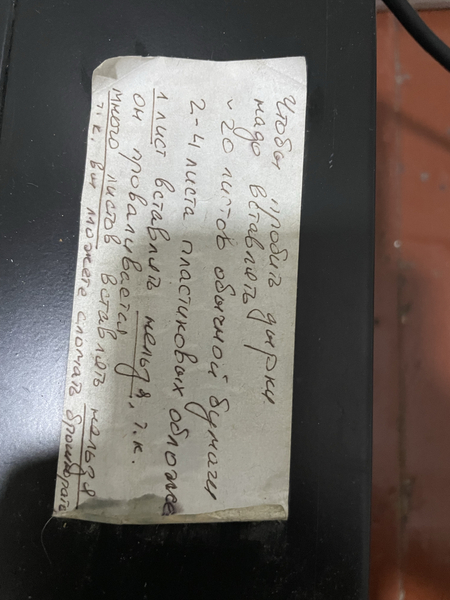 Чтобы пробить дырки
надо вставлять
~ 20 листов обычной бумаги
2-4 листа пластиковых обложе
1 лист вставлять нельзя, т.к.
он проваливается
много листов вставлять нельзя
т.к. вы можете сломать брошюратор